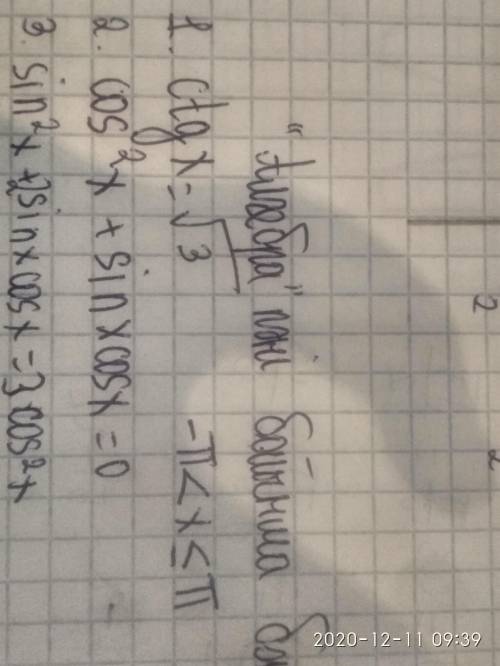 "Алгебра" пәні бойынша
1. ctg x = √3   -π < x ≤ π
2. cos²x + sin x cos x = 0
3. sin²x + 2 sin x cos x = 3 cos²x
2 2
2020-12-11 09:39